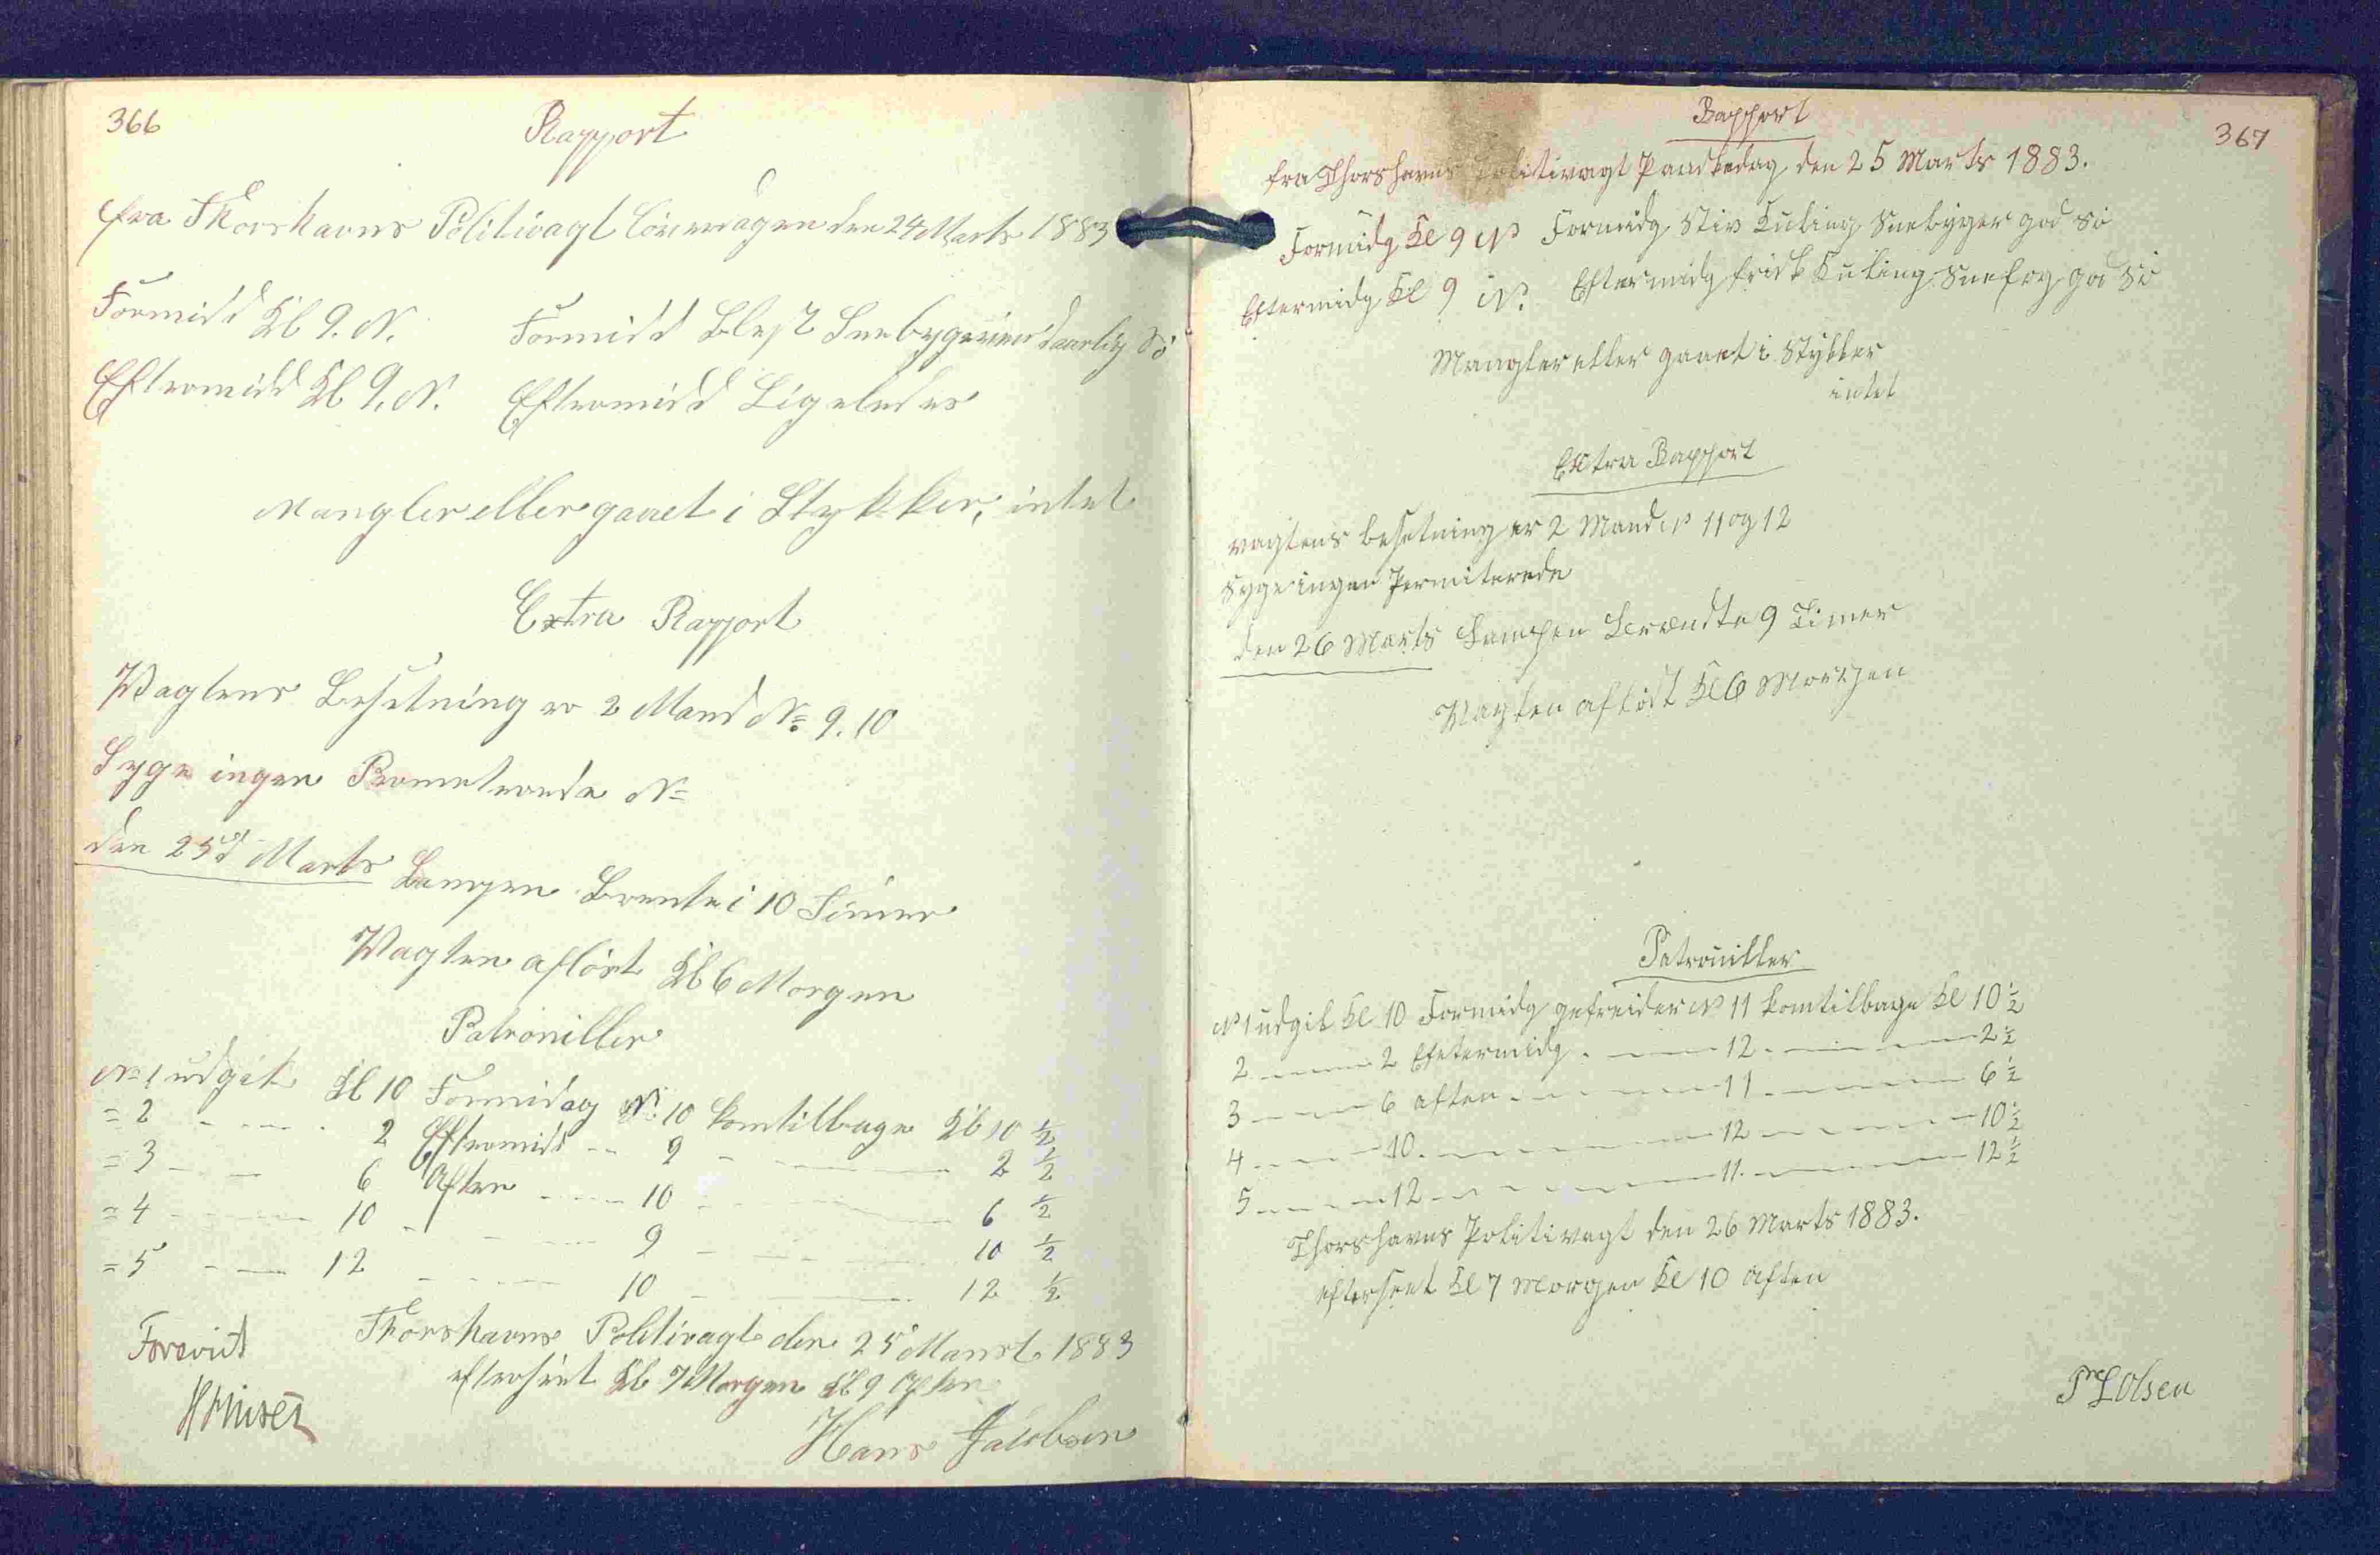 366
Rapport
fra Thorshavns Politivagt Löverdagen den 24 Marts 1883
Formidd Kl 9. N. Formidd Blest Snebygerier daarlig Sö
Eftermidd Kl 9. N. Eftermidd Ligeledes
Mangler eller gaaet i Stykker, intet
Extra Rapport
Vagtens Besetning er 2 Mand No 9. 10
Syge ingen Permeterede No
den 25d Marts Lampen Brente i 10 Timer
Vagten aflöst Kl 6 Morgen
Patrouiller
No 1 udgik Kl 10 Formidag No 10 komtilbage Kl 10 ½
= 2 - - - 2 Eftermidd - - 9 - - - 2 ½
= 3 - - - 6 Aften - - - 10 - - - 6 ½
= 4 - - - 10 - - - 9 - - - 10 ½
= 5 - - - 12 - - - 10 - - - 12 ½
Thorshavns Politivagt den 25 Marst 1883
Forevist
efterseet Kl 7 Morgen Kl 9 Aften
Hans Jacobsen
367
Rapport
fra Thorshavns Politivagt Paaskedag den 25 Marts 1883.
Formidg Kl 9 N Formidg Stiv Kuling Snebyger god Sö
Eftermidg Kl 9 N. Eftermidg frisk Kuling Snefog god Sö
Mangler eller gaaet i Stykker
intet
Extra Rapport
vagtens besetning er 2 Mand No 11 og 12
Syge ingen Permiterede
den 26 Marts Lampen Brændte 9 Timer
Vagten aflöst Kl 6 Morgen
Patrouiller
No 1 udgik Kl 10 Formidg gefreider No 11 komtilbage Kl 10 ½
2 - - - 2 Eftermidg - - - 12 - - - 2 ½
3 - - - 6 aften - - - 11 - - - 6 ½
4 - - - 10 - - - 12 - - - 10 ½
5 - - - 12 - - - 11 - - - 12 ½
Thorshavns Politivagt den 26 Marts 1883.
efterseet Kl 7 Morgen Kl 10 Aften
Olsen